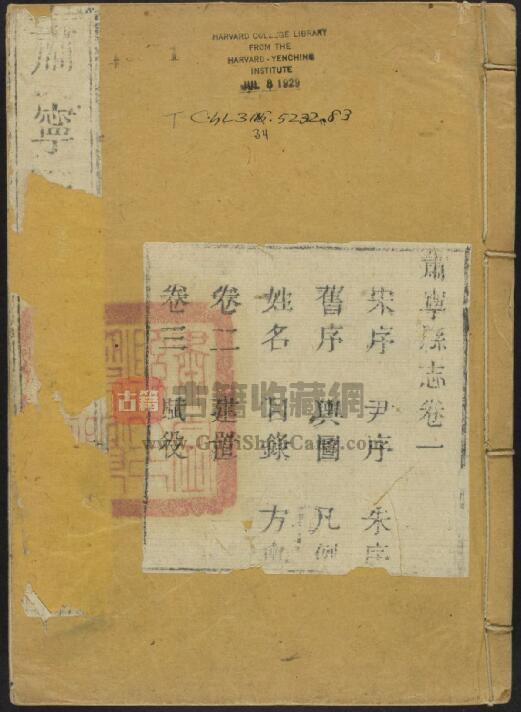 HARVARD COLLEGE LIBRARY
FROM THE
HARVARD-YENCHING
INSTITUTE
JUL 8 1929
T
34
肅寧
肅寧縣志卷一
宋序 尹序 朱序
舊序 輿圖 凡例
姓名 目錄 方輿
卷二 建置
卷三 賦役
古籍
古籍收藏網
www.GuJiShuCang.com